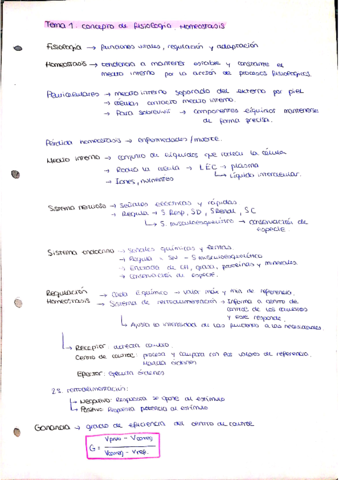 Tema 1: concepto de fisiología Homeostasis
Fisiología → funciones vitales, regulación y adaptación
Homeostasis → tendencia a mantener estable y constante el
medio interno por la acción de procesos fisiológicos
Pluricelulares → medio interno separado del externo por piel
→ células contacto medio interno.
→ Para sobrevivir → componentes equimos mantenerse
de forma precisa.
Pérdida homeostasis → enfermedades / muerte.
Medio interno → conjunto de líquidos que rodea la célula
→ Rodea la célula → LEC → plasma
↳ líquido intersticial.
→ Iones, nutrientes
Sistema nervioso → señales eléctricas y rápidas
→ Regula → S Resp, SD, S Renal, SC
↳ S. musculoesquelético → conservación de
especie
Sistema endocrino → Señales químicas y lentas.
→ Regula → SN - S musculoesquelético
→ Entrada de CH, grasas, proteínas y minerales.
→ conservación de especie.
Regulación → Cada químico → valor máx y mín de referencia.
Homeostasis → Sistema de retroalimentación → Informa a centro de
control de los
y este responde.
↳ Ajusta la intensidad de las funciones a las necesidades
↳ Receptor: detecta cambio.
Centro de control: procesa y compara con los valores de referencia.
Manda órdenes
Efector: ejecuta órdenes
2 T. retroalimentación:
↳ Negativo: Respuesta se opone al estímulo
↳ Positivo: Respuesta potencia al estímulo
Ganancia → grado de eficiencia del centro de control
G =